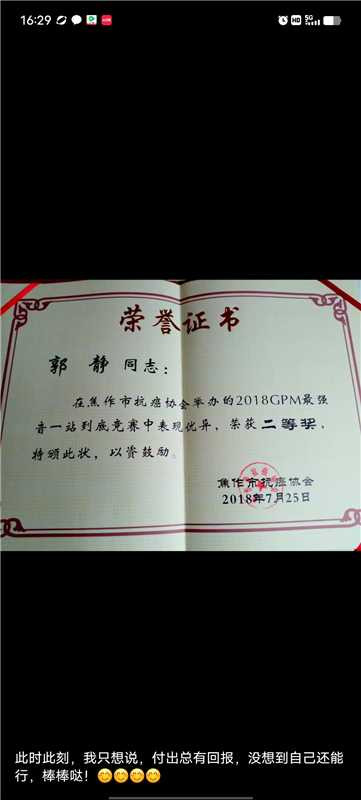 16:29
HD 5G
荣誉证书
郭 静 同志：
在焦作市抗癌协会举办的2018GPM最强
音一站到底竞赛中表现优异，荣获二等奖，
特颁此状，以资鼓励。
焦作市抗癌协会
2018年7月25日
此时此刻，我只想说，付出总有回报，没想到自己还能
行，棒棒哒！😊😊😊😊